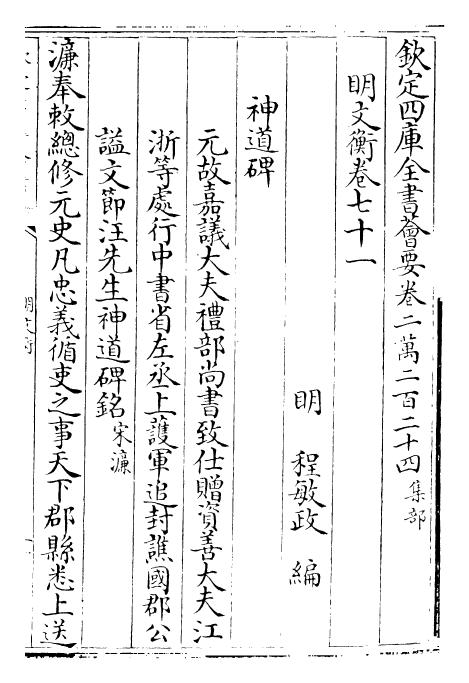 欽定四庫全書薈要卷二萬二百二十四集部
明文衡卷七十一
明 程敏政 編
神道碑
元故嘉議大夫禮部尚書致仕贈資善大夫江
浙等處行中書省左丞上護軍追封譙國郡公
謚文節汪先生神道碑銘宋濂
濂奉敕總修元史凡忠義循吏之事天下郡縣悉上送